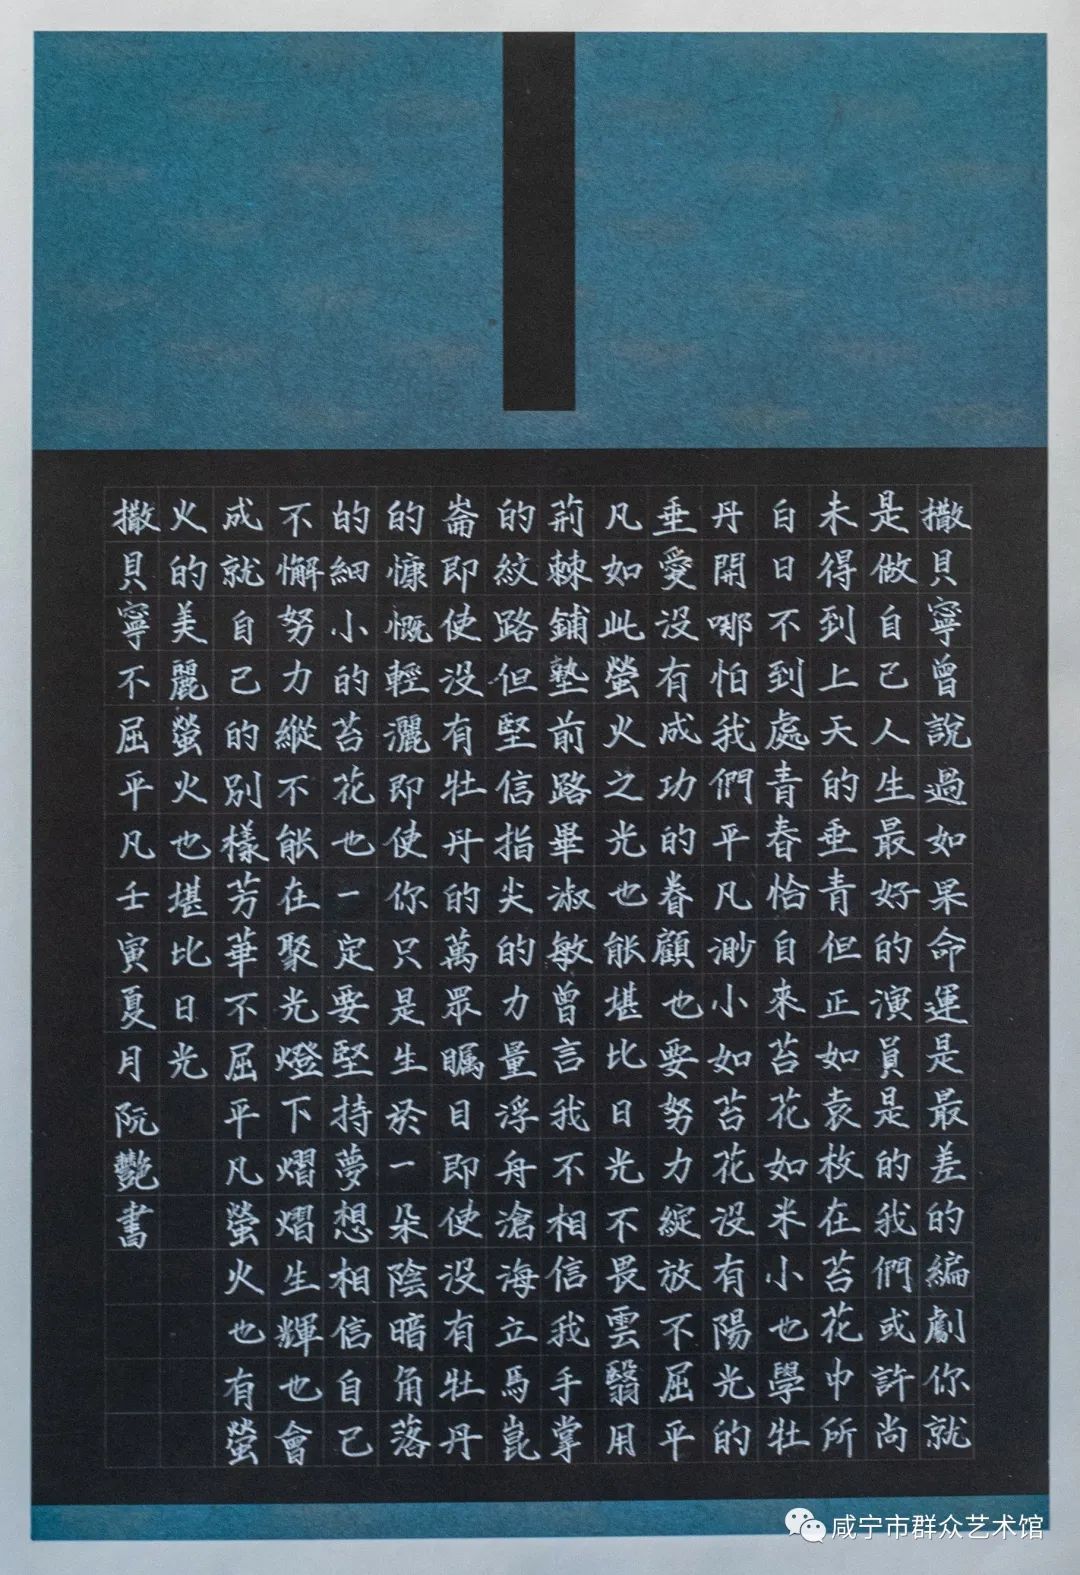 撒貝寧曾說過如果命運是最差的編劇你就
是做自己人生最好的演員是的我們或許尚
未得到上天的垂青但正如袁枚在苔花中所
白日不到處青春恰自來苔花如米小也學牡
丹開哪怕我們平凡渺小如苔花沒有陽光的
垂愛沒有成功的眷顧也要努力綻放不屈平
凡如此螢火之光也能堪比日光不畏雲翳用
荊棘鋪墊前路畢淑敏曾言我不相信我手掌
的紋路但堅信指尖的力量浮舟滄海立馬崑
崙即使沒有牡丹的萬眾矚目即使沒有牡丹
的慷慨輕灑即使你只是生於一朵陰暗角落
的細小的苔花也一定要堅持夢想相信自己
不懈努力縱不能在聚光燈下熠熠生輝也會
成就自己的別樣芳華不屈平凡螢火也有螢
火的美麗螢火也堪比日光
撒貝寧不屈平凡壬寅夏月阮艷書
咸宁市群众艺术馆